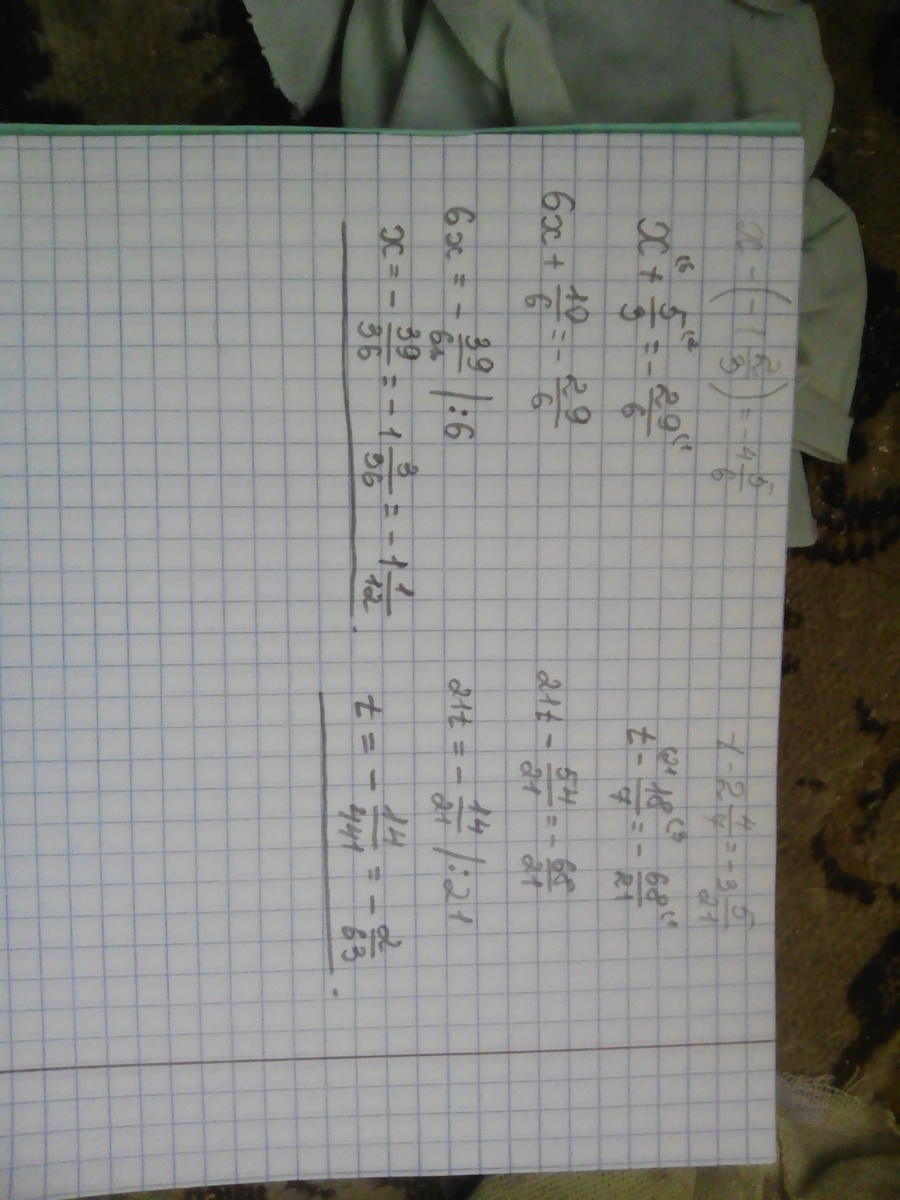 x - (-1 2/3) = -4 5/6
x⁽⁶ + 5/3⁽² = - 29/6⁽¹
6x + 10/6 = - 29/6
6x = - 39/6 /:6
x = - 39/36 = -1 3/36 = -1 1/12.
t - 2 4/7 = -3 5/21
t⁽²¹ - 18/7⁽³ = - 68/21⁽¹
21t - 54/21 = - 68/21
21t = - 14/21 /:21
t = - 14/441 = - 2/63.